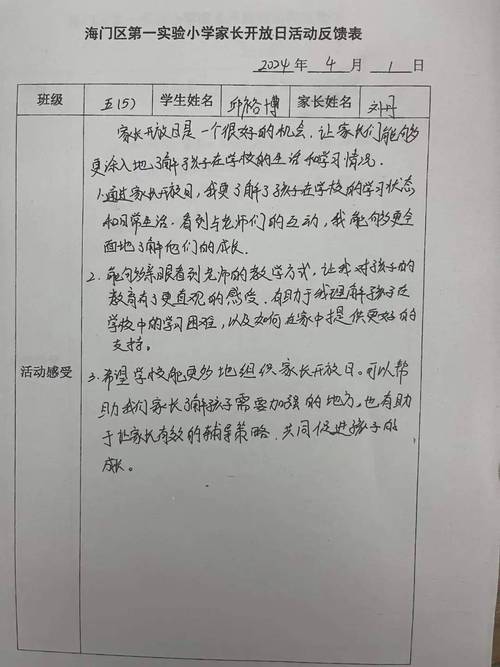 海门区第一实验小学家长开放日活动反馈表
2024 年 4 月 1 日
班级 五(5) 学生姓名 邱裕博 家长姓名 刘丹
家长开放日是一个很好的机会，让家长们能够
更深入地了解孩子在学校的生活和学习情况。
1.通过家长开放日，我更了解了孩子在学校的学习状态
和日常生活。看到与老师们的互动，我能够更全
面地了解他们的成长。
2. 能够亲眼看到老师的教学方式，让我对孩子的
教育有了更直观的感受。有助于我理解孩子在
学校中的学习困难，以及如何在家中提供更好的
支持。
活动感受
3.希望学校能更多地组织家长开放日。可以帮
助我们家长了解孩子需要加强的地方，也有助
于让家长有效的辅导策略，共同促进孩子的
成长。